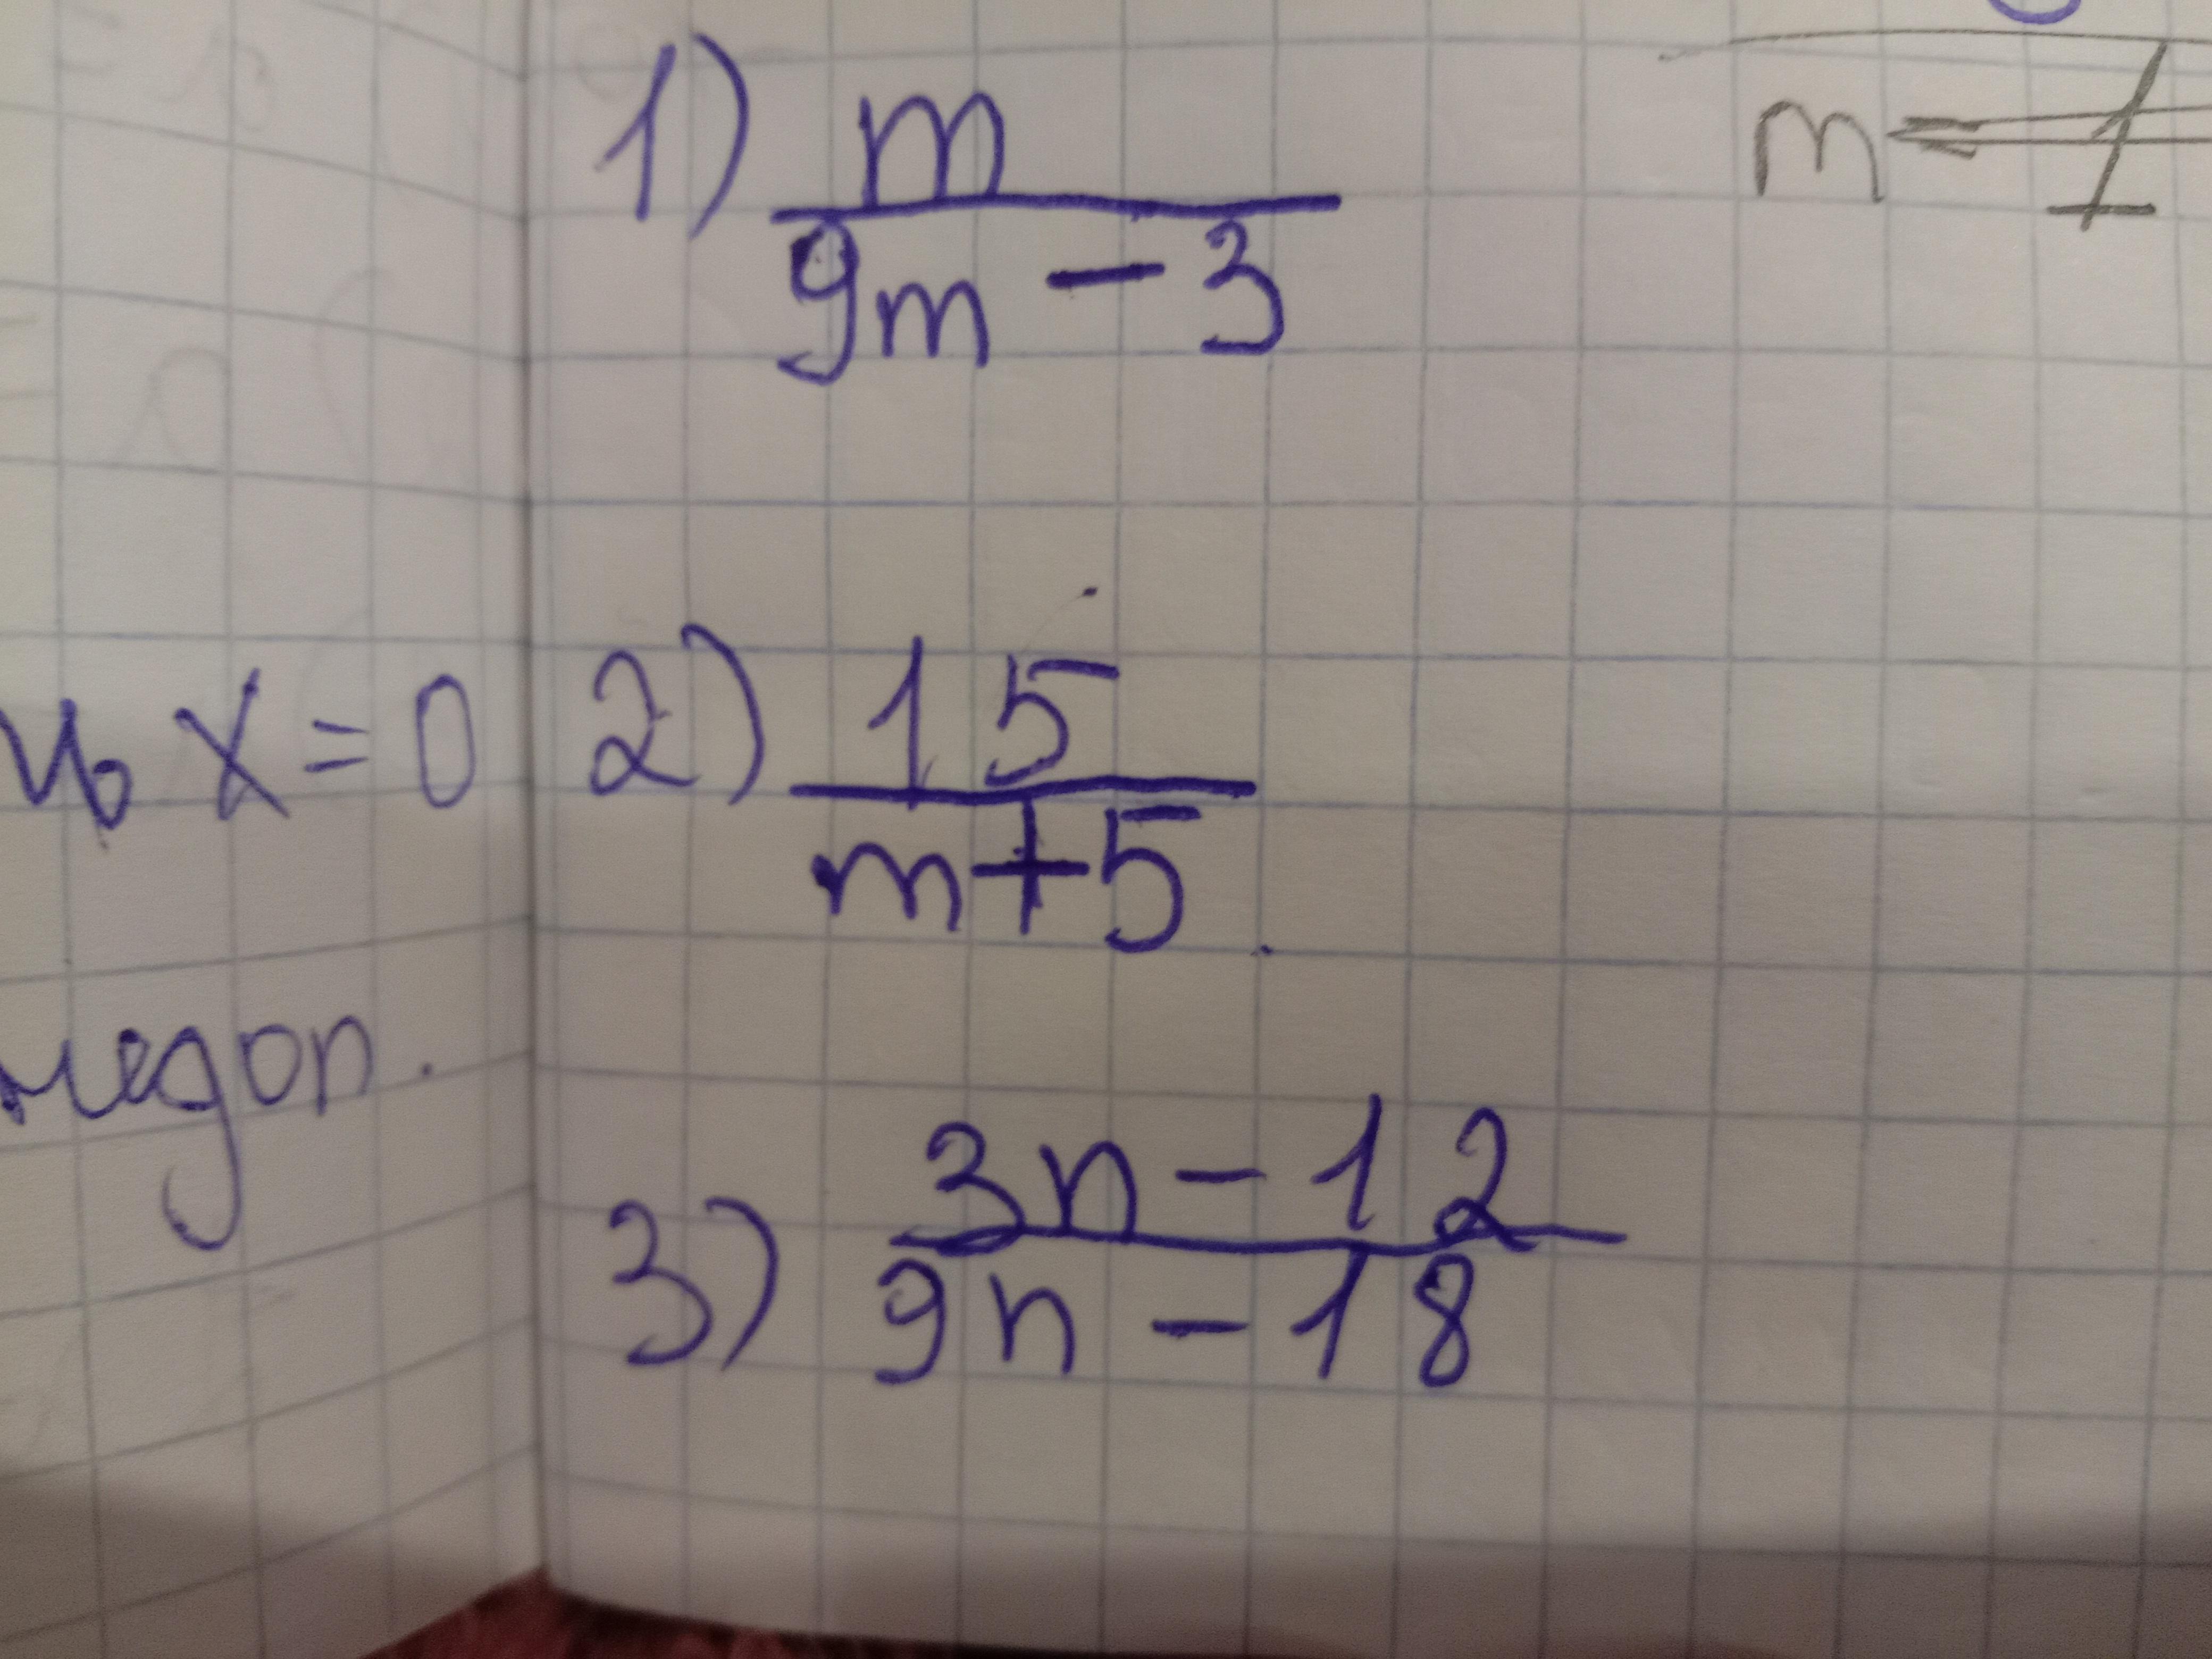 1) m
9m - 3
m = 1
x = 0
2) 15
m+5
3) 3n - 12
9n - 18